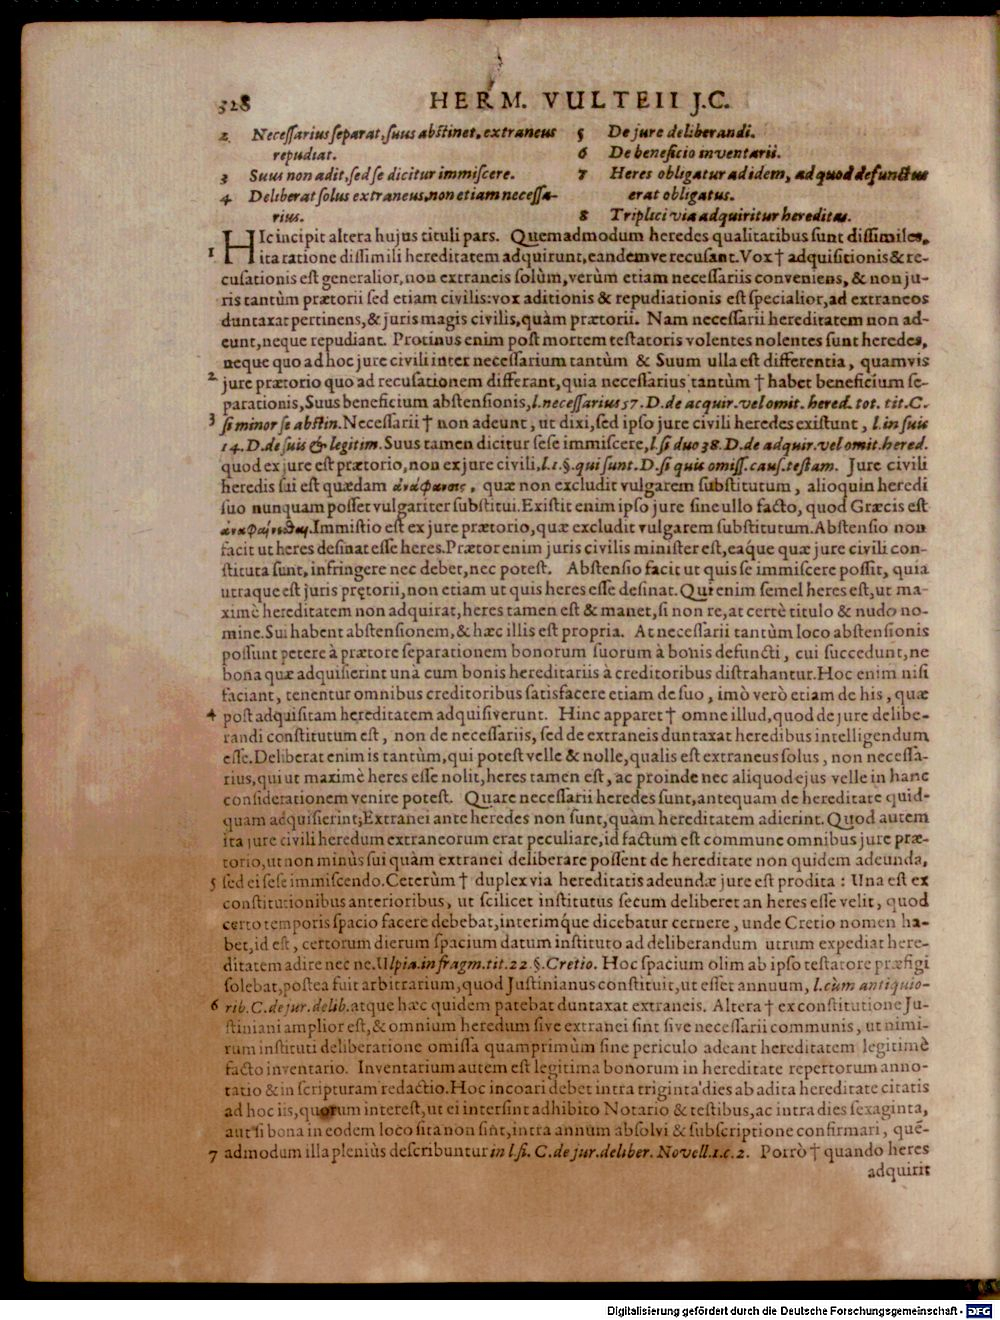 328 HERM. VULTEII J.C.
2 Necessarius separat, suus abstinet, extraneus
repudiat.
3 Suus non adit, sed se dicitur immiscere.
4 Deliberat solus extraneus, non etiam necessa-
rius.
5 De jure deliberandi.
6 De beneficio inventarii.
7 Heres obligatur ad idem, ad quod defunctus
erat obligatus.
8 Triplici via adquiritur hereditas.
HIc incipit altera hujus tituli pars. Quemadmodum heredes qualitatibus sunt dissimiles,
1 ita ratione dissimili hereditatem adquirunt, eandemve recusant. Vox † adquisitionis & re-
cusationis est generalior, non extraneis solùm, verùm etiam necessariis conveniens, & non ju-
ris tantùm prætorii sed etiam civilis: vox aditionis & repudiationis est specialior, ad extraneos
duntaxat pertinens, & juris magis civilis, quàm prætorii. Nam necessarii hereditatem non ad-
eunt, neque repudiant. Protinus enim post mortem testatoris volentes nolentes sunt heredes,
neque quo ad hoc jure civili inter necessarium tantùm & Suum ulla est differentia, quamvis
2 jure prætorio quo ad recusationem differant, quia necessarius tantùm † habet beneficium se-
parationis, Suus beneficium abstensionis, l. necessarius 57. D. de acquir. vel omit. hered. tot. tit. C.
3 si minor se abstin. Necessarii † non adeunt, ut dixi, sed ipso jure civili heredes existunt, l. in suis
14. D. de suis & legitim. Suus tamen dicitur sese immiscere, l. si duo 38. D. de adquir. vel omit. hered.
quod ex jure est prætorio, non ex jure civili, l. 1. §. qui sunt. D. si quis omiss. caus. testam. Jure civili
heredis sui est quædam ἀνάφανσις, quæ non excludit vulgarem substitutum, alioquin heredi
suo nunquam posset vulgariter substitui. Existit enim ipso jure sine ullo facto, quod Græcis est
ἀναφαίνεσθαι. Immistio est ex jure prætorio, quæ excludit vulgarem substitutum. Abstensio non
facit ut heres desinat esse heres. Prætor enim juris civilis minister est, eaq́ue quæ jure civili con-
stituta sunt, infringere nec debet, nec potest. Abstensio facit ut quis se immiscere possit, quia
utraque est juris prętorii, non etiam ut quis heres esse desinat. Qui enim semel heres est, ut ma-
ximè hereditatem non adquirat, heres tamen est & manet, si non re, at certè titulo & nudo no-
mine. Sui habent abstensionem, & hæc illis est propria. At necessarii tantùm loco abstensionis
possunt petere à prætore separationem bonorum suorum à bonis defuncti, cui succedunt, ne
bona quæ adquisierint unà cum bonis hereditariis à creditoribus distrahantur. Hoc enim nisi
faciant, tenentur omnibus creditoribus satisfacere etiam de suo, imò verò etiam de his, quæ
4 post adquisitam hereditatem adquisiverunt. Hinc apparet † omne illud, quod de jure delibe-
randi constitutum est, non de necessariis, sed de extraneis duntaxat heredibus intelligendum
esse. Deliberat enim is tantùm, qui potest velle & nolle, qualis est extraneus solus, non necessa-
rius, qui ut maximè heres esse nolit, heres tamen est, ac proinde nec aliquod ejus velle in hanc
considerationem venire potest. Quare necessarii heredes sunt, antequam de hereditate quid-
quam adquisierint; Extranei ante heredes non sunt, quàm hereditatem adierint. Quod autem
ita jure civili heredum extraneorum erat peculiare, id factum est commune omnibus jure præ-
torio, ut non minùs sui quàm extranei deliberare possent de hereditate non quidem adeunda,
5 sed ei sese immiscendo. Ceterùm † duplex via hereditatis adeundæ jure est prodita: Una est ex
constitutionibus anterioribus, ut scilicet institutus secum deliberet an heres esse velit, quod
certo temporis spacio facere debebat, interimq́ue dicebatur cernere, unde Cretio nomen ha-
bet, id est, certorum dierum spacium datum instituto ad deliberandum utrum expediat here-
ditatem adire nec ne. Ulpia. in fragm. tit. 22 §. Cretio. Hoc spacium olim ab ipso testatore præfigi
solebat, postea fuit arbitrarium, quod Justinianus constituit, ut esset annuum, l. cùm antiquio-
6 rib. C. de jur. delib. atque hæc quidem patebat duntaxat extraneis. Altera † ex constitutione Ju-
stiniani amplior est, & omnium heredum sive extranei sint sive necessarii communis, ut nimi-
rum instituti deliberatione omissa quamprimùm sine periculo adeant hereditatem legitimè
facto inventario. Inventarium autem est legitima bonorum in hereditate repertorum anno-
tatio & in scripturam redactio. Hoc incoari debet intra triginta dies ab adita hereditate citatis
ad hoc iis, quorum interest, ut ei intersint adhibito Notario & testibus, ac intra dies sexaginta,
aut si bona in eodem loco sita non sint, intra annum absolvi & subscriptione confirmari, quē-
7 admodum illa pleniùs describuntur in l. fi. C. de jur. deliber. Novell. 1. c. 2. Porrò † quando heres
adquirit
Digitalisierung gefördert durch die Deutsche Forschungsgemeinschaft - DFG